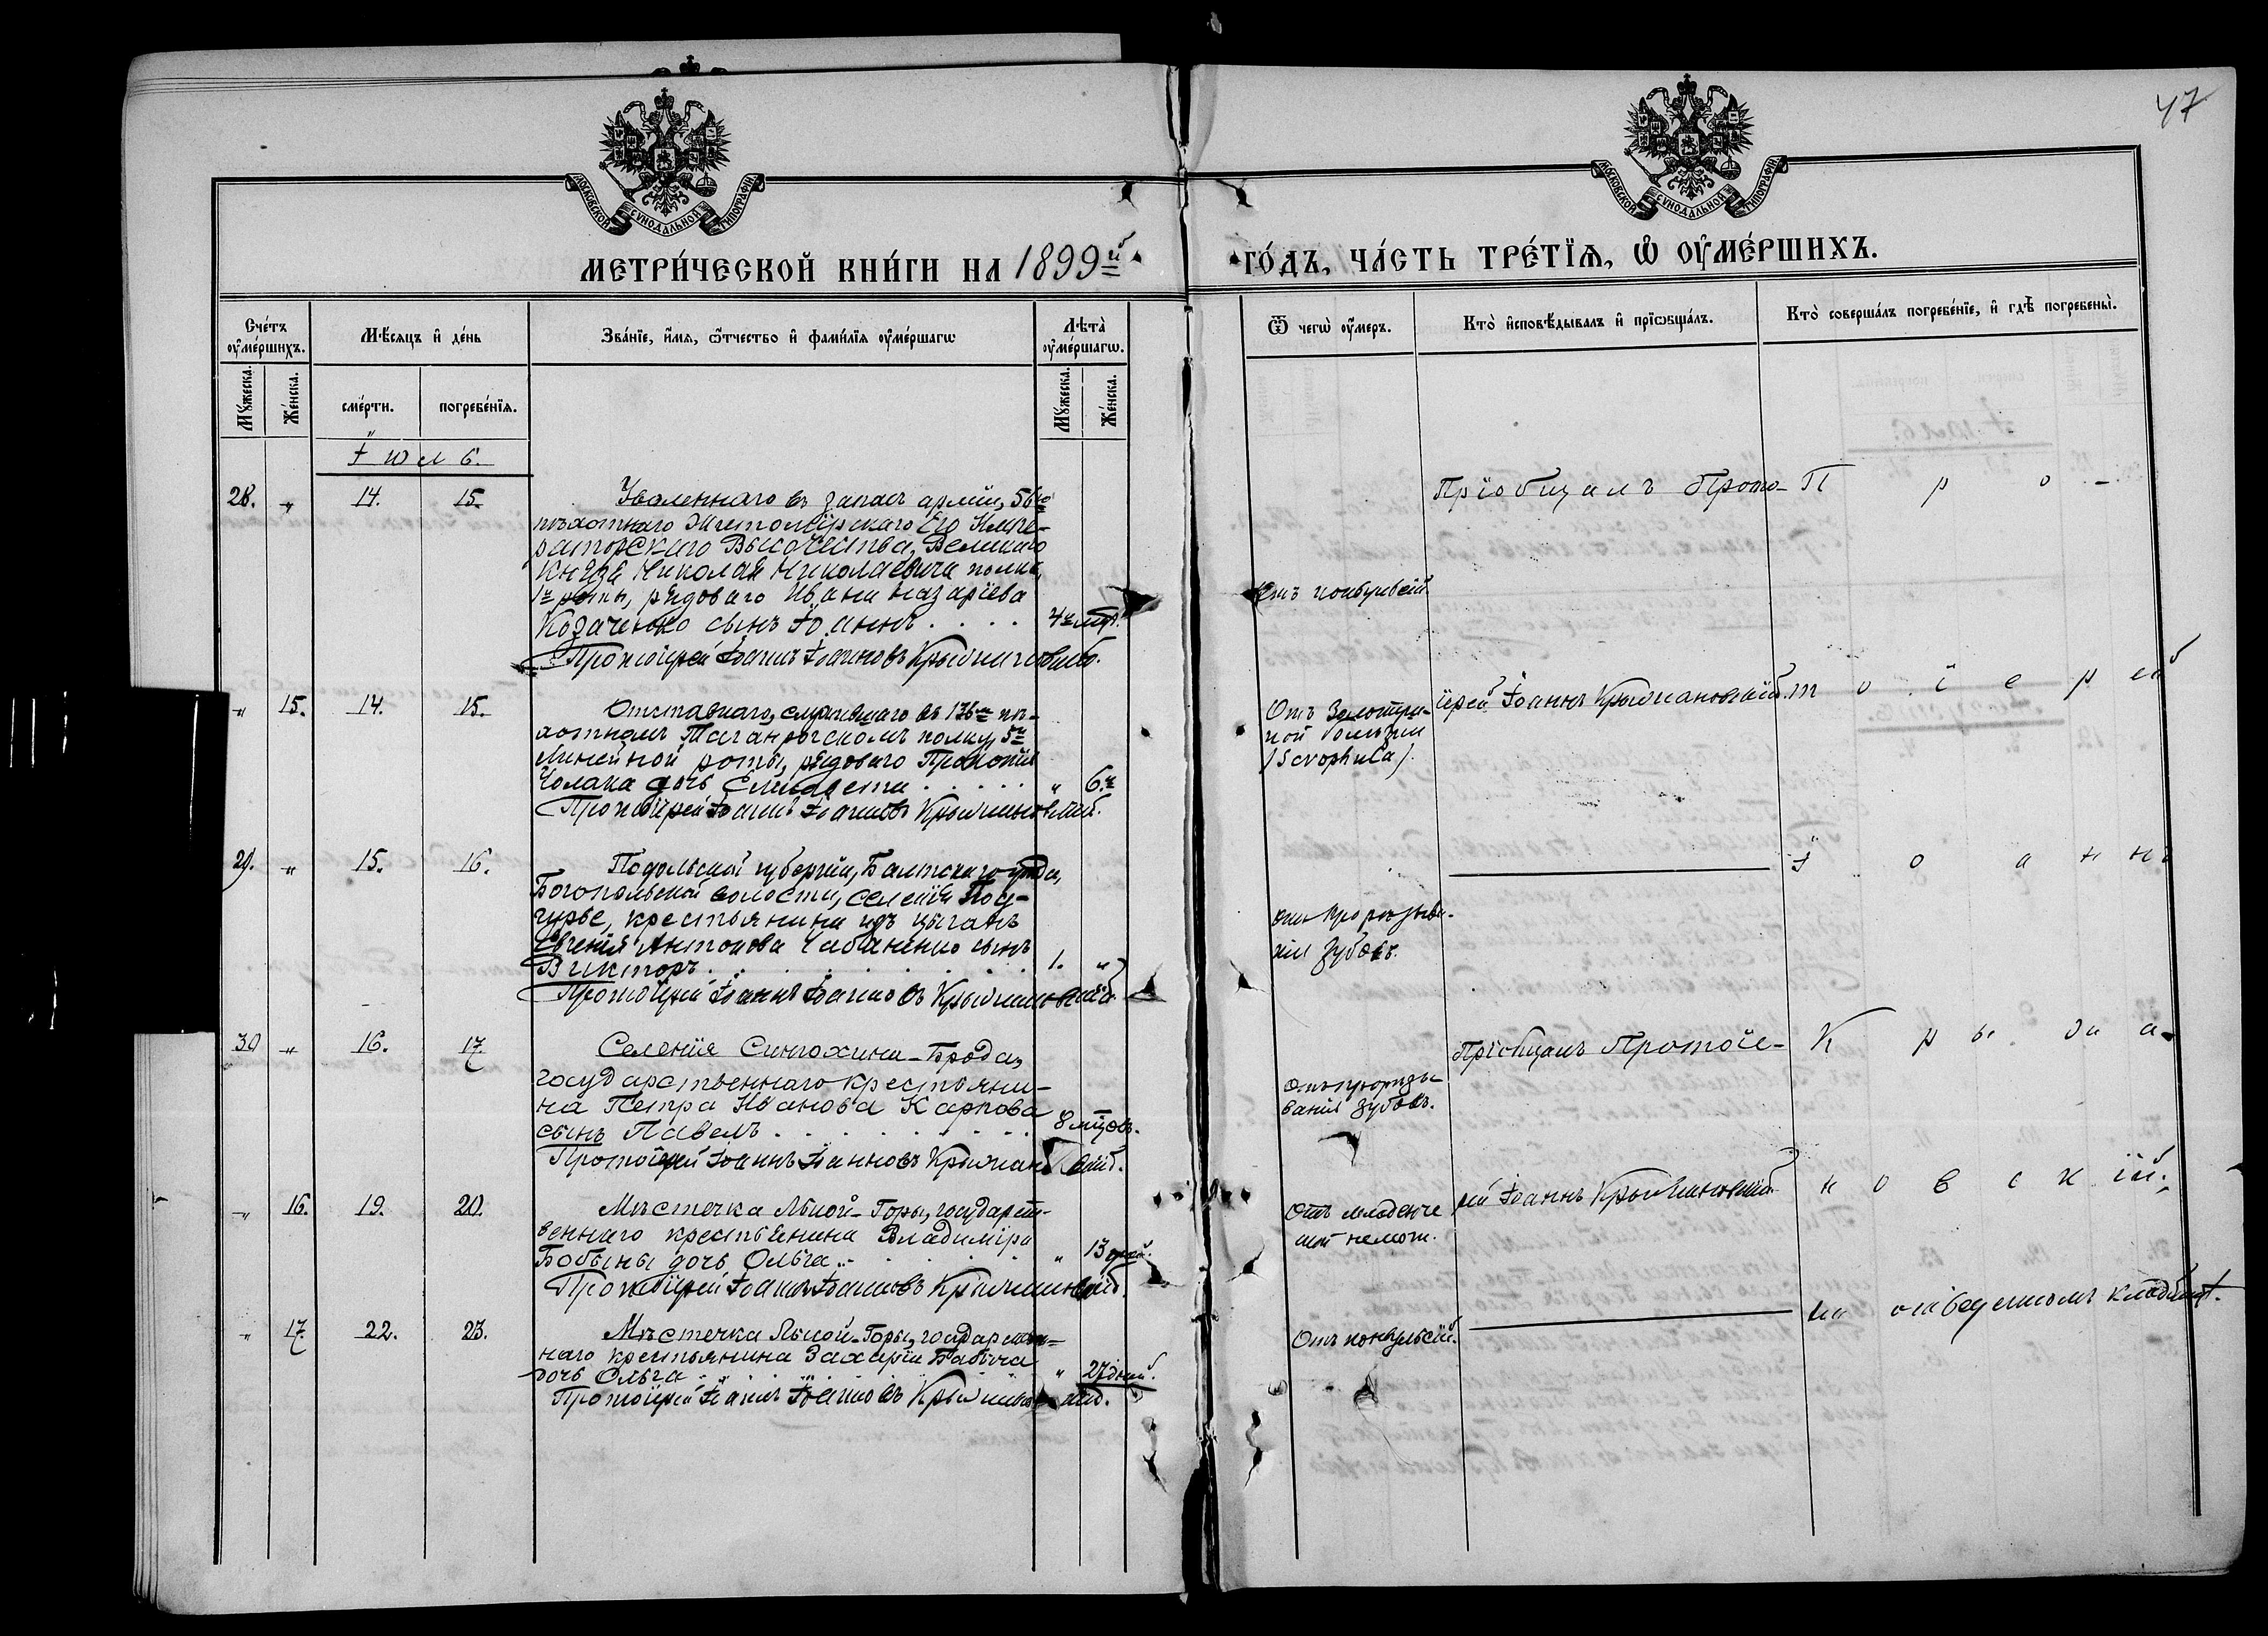 47
МОСКОВСКОЙ СѴНОДАЛЬНОЙ ТИПОГРАФІИ
МОСКОВСКОЙ СѴНОДАЛЬНОЙ ТИПОГРАФІИ
МЕТРИ́ЧЕСКОЙ КНИ́ГИ НА 1899й
ГО́ДЪ, ЧА́СТЬ ТРЕ́ТІЯ, Ѡ ОУМЕ́РШИХЪ.
Сче́тъ оумéршихъ.
Мѣ́сяцъ и де́нь
Зва́ніе, и́мя, ѻ҆́тчество и фами́лія оумéршагѡ
Лѣта̀ оумéршагѡ.
Мꙋ́жеска.
Же́нска.
сме́рти.
погребе́нія.
Мꙋ́жеска.
Же́нска.
Ѿ чегѡ̀ оу́меръ.
Кто̀ и҆сповѣ́дывалъ и прїѡбща́лъ.
Кто̀ соверша́лъ погребе́ніе, и гдѣ̀ погребены̀.
Іюль.
28. „ 14. 15. Уволеннаго въ запасъ арміи, 56го
пѣхотнаго Житомірскаго Его Импе-
раторскаго Высочества, Великаго
Князя Николая Николаевича полка,
1й роты, рядоваго Ивана Назаріева
Козаченко сынъ Іоаннъ . . . . 4 мѣс.
Протоіерей Іоаннъ Іоанновъ Крыжановскій.
Отъ конвульсій.
Пріобщалъ Прото-
П р о -
„ 15. 14. 15. Отставнаго, служившаго въ 136мъ пѣ-
хотномъ Таганрогскомъ полку, 5й
Линейной роты, рядоваго Прокопія
Чолака дочь Елисавета . . . . . „ 6.
Протоіерей Іоаннъ Іоанновъ Крыжановскій.
Отъ Золотуш-
ной болѣзни
(Scrophula).
іерей Іоаннъ Крыжановскій.
т о і е р ей
29. „ 15. 16. Подольской губерніи, Балтскаго уѣзда,
Богопольской волости, селенія Под-
гурье, крестьянина изъ цыганъ
Евгенія Антонова Чабаненко сынъ
Викторъ . . . . . . . . . 1. „
Протоіерей Іоаннъ Іоанновъ Крыжановскій.
отъ прорѣзыва-
нія зубовъ.
І о а н нъ
30 „ 16. 17. Селенія Синюхина-Брода,
государственнаго крестьяни-
на Петра Иванова Карпова
сынъ Павелъ . . . . . . . . 8 мѣсяцовъ.
Протоіерей Іоаннъ Іоанновъ Крыжановскій.
Отъ прорѣзы-
ванія зубовъ.
Пріобщалъ Протоіе-
К р ы ж а-
„ 16. 19. 20. Мѣстечка Лысой-Горы, государст-
веннаго крестьянина Владиміра
Бабыны дочь Ольга . . . . . „ 13 дней.
Протоіерей Іоаннъ Іоанновъ Крыжановскій.
Отъ младенче
ской немощи.
рей Іоаннъ Крыжановскій.
н о в с к ій.
„ 17. 22. 23. Мѣстечка Лысой-Горы, государствен-
наго крестьянина Захаріи Бабича
дочь Ольга . . . . . . . „ 27 дней.
Протоіерей Іоаннъ Іоанновъ Крыжановскій.
Отъ конвульсій.
на отведенномъ кладбищѣ.